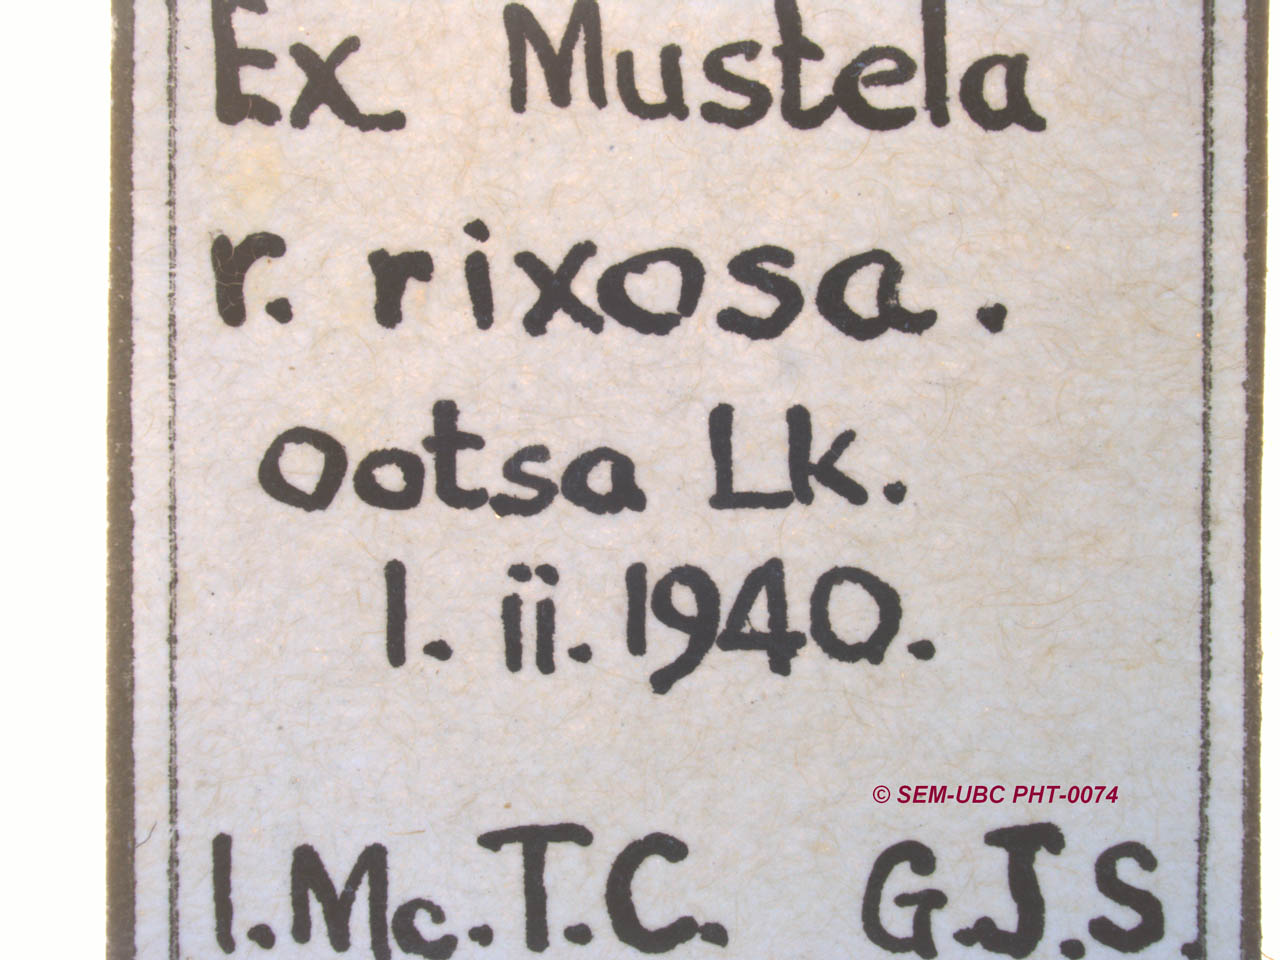 Ex Mustela
r. rixosa.
Ootsa Lk.
1. ii. 1940.
© SEM-UBC PHT-0074
I.Mc.T.C. G.J.S.